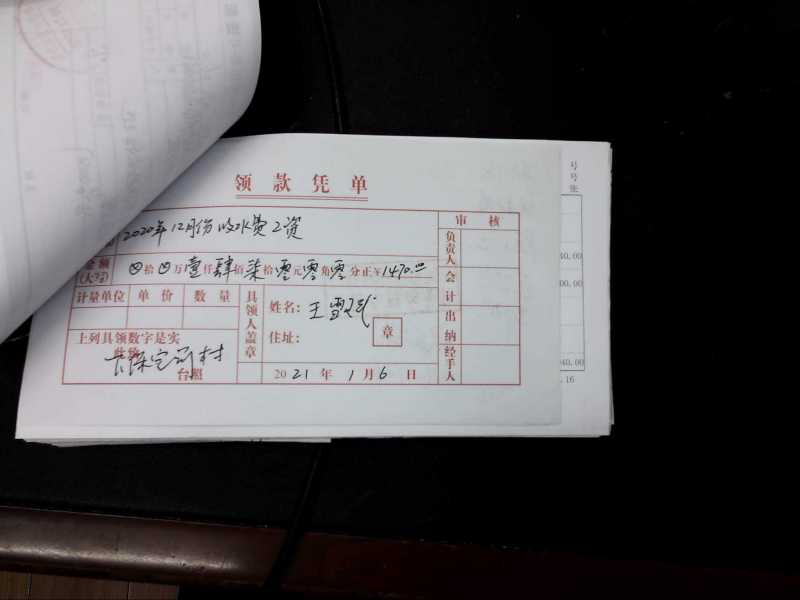 领款凭单
2020年12月份收水费工资
审核
金额
(大写)
拾 万壹仟肆佰柒拾零元零角零分正￥1470.00
负责人
计量单位 单价 数量
具领人盖章
姓名: 王雪
章
住址:
会计
出纳
上列具领数字是实
此致
村
台照
2021年1月6日
经手人
号
号
张
40.00
00.00
40.00
.16